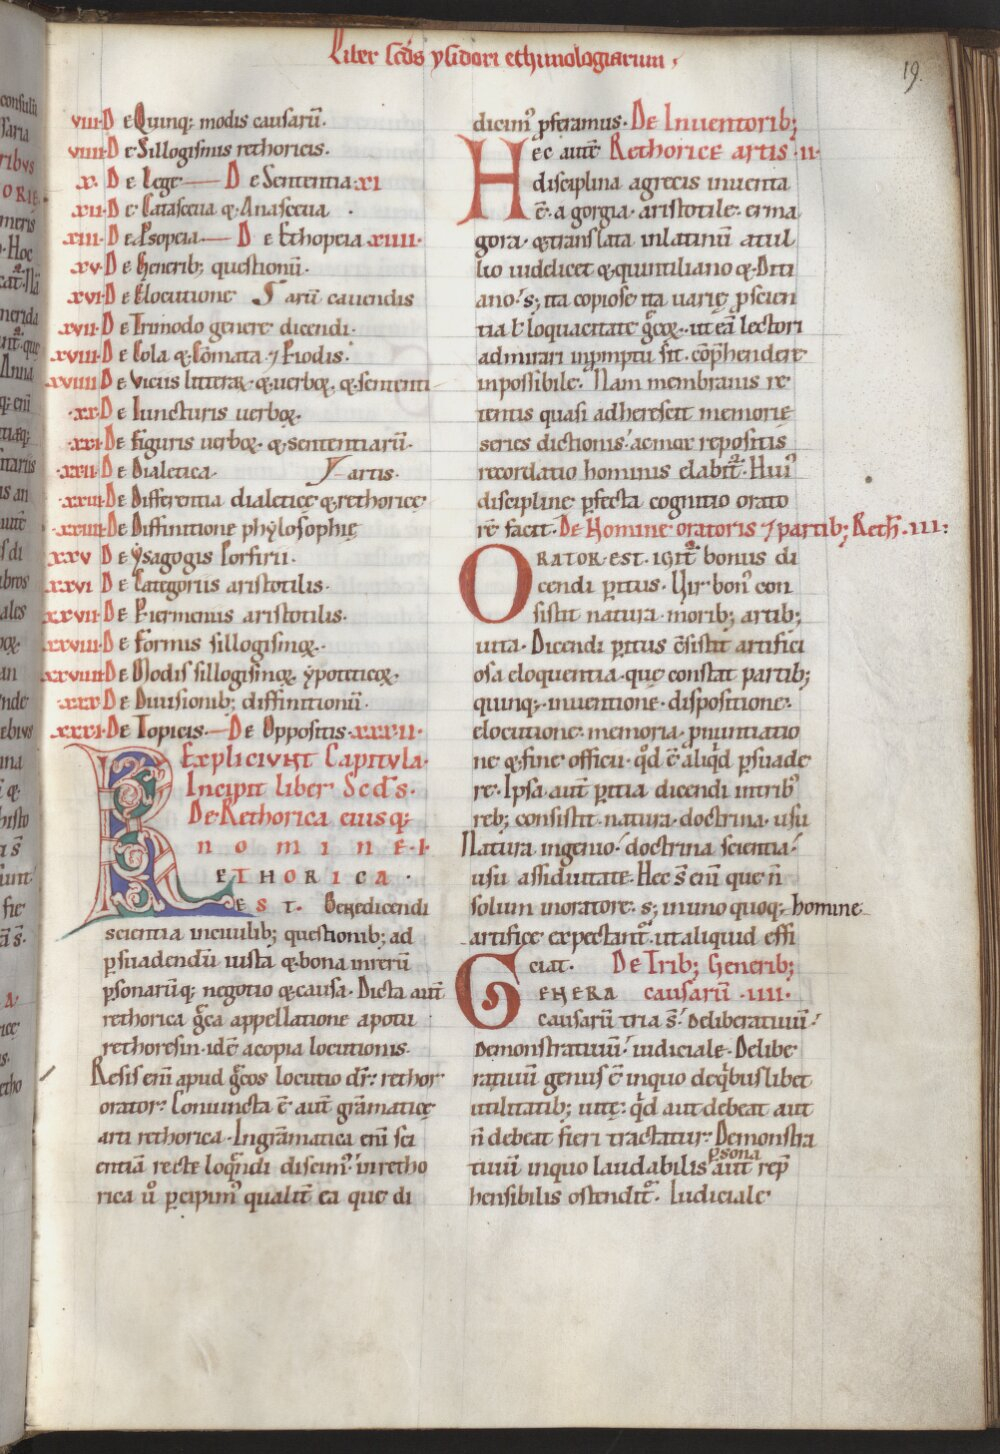 Liber scds ysidori ethimologiarum
19.
viii· De Quinq; modis causarū·
viiii· De Sillogismis rethoricis·
x· De Lege — De Sententia· xi
xii· De Catasceua & Anasceua·
xiii· De Psopeia — De Ethopeia xiiii·
xv· De Generib; questionū·
xvi· De Elocutione Sarū cauendis
xvii· De Trimodo genere dicendi·
xviii· De Cola & Cōmata ⁊ Piodis·
xviiii· De viciis litterarꝝ & uerboꝝ & sententi
xx· De Iuncturis uerboꝝ·
xxi· De figuris uerboꝝ & sententiarū·
xxii· De Dialetica· artis·
xxiii· De Differentia dialetice & rethorice
xxiiii· De Diffinitione phylosophie
xxv De ysagogis Porfirii·
xxvi De Categoriis aristotilis·
xxvii· De Piermeniis aristotilis·
xxviii· De Formis sillogismoꝝ·
xxviiii· De Modis sillogismoꝝ ypoteticoꝝ·
xxx· De Diuisionib; diffinitionū·
xxxi· De Topicis — De Oppositis· xxxii·
Expliciunt Capitula·
Incipit liber Scds·
De Rethorica eiusq;
nomine· I·
RETHORICA·
EST· Benedicendi
scientia inciuilib; questionib; ad
psuadendū iusta & bona inrerū
psonarūq; negotio & causa· Dicta aut
rethorica gca appellatione apotu
rethoresin· idē acopia locutionis·
Resis eni apud gcos locutio dr· rethor
orator· Coniuncta ē aut gramatice
arti rethorica· Ingramatica eni sci
entiā recte loqndi discim'· inretho
rica u° pcipim' qualit ea que di
dicim' pferamus· De Inuentorib;
Hec autē Rethorice artis· ii·
disciplina agrecis inuenta
ē· a gorgia· aristotile· erma
gora· & translata inlatinū atul
lio uidelicet & quintiliano & Diti
ano· s; ita copiose ita uarie pscien
tia ł loquacitate gcoꝝ· ut eā lectori
admirari inpmptu sit· cōphendere
inpossibile· Nam membranis re
tentis quasi adherescit memorie
series dictionis· acmox repositis
recordatio hominis elabit· Hui'
discipline pfecta cognitio orato
rē facit· De Homine oratoris ⁊ partib; Reth· III:
ORATOR· EST· IGIT bonus di
cendi pitus· Uir bon' con
sistit natura· morib; artib;
uita· Dicendi pitus cōsistit artifici
osa eloquentia· que constat partib;
quinq;· inuentione· dispositione·
elocutione· memoria· pnuntiatio
ne & fine officii· qd ē aliqd psuade
re· Ipsa aut pitia dicendi intrib'
reb; consistit· natura· doctrina· usu
Natura ingenio· doctrina scientia·
usu assiduitate· Hec s̄ eni que n̄
solum inoratore· s; inuno quoq; homine
artifice expectant· ut aliquid effi
ciat· De Trib; Generib;
GENERA causarū· IIII·
causarū tria s̄· Deliberatiuū·
Demonstratiuū· iudiciale· Delibe
ratiuū genus ē inquo deqbuslibet
utilitatib; uite· qd aut debeat aut
n̄ debeat fieri tractatur· Demonstra
psona
tiuū inquo laudabilis aut rep
hensibilis ostendit· Iudiciale